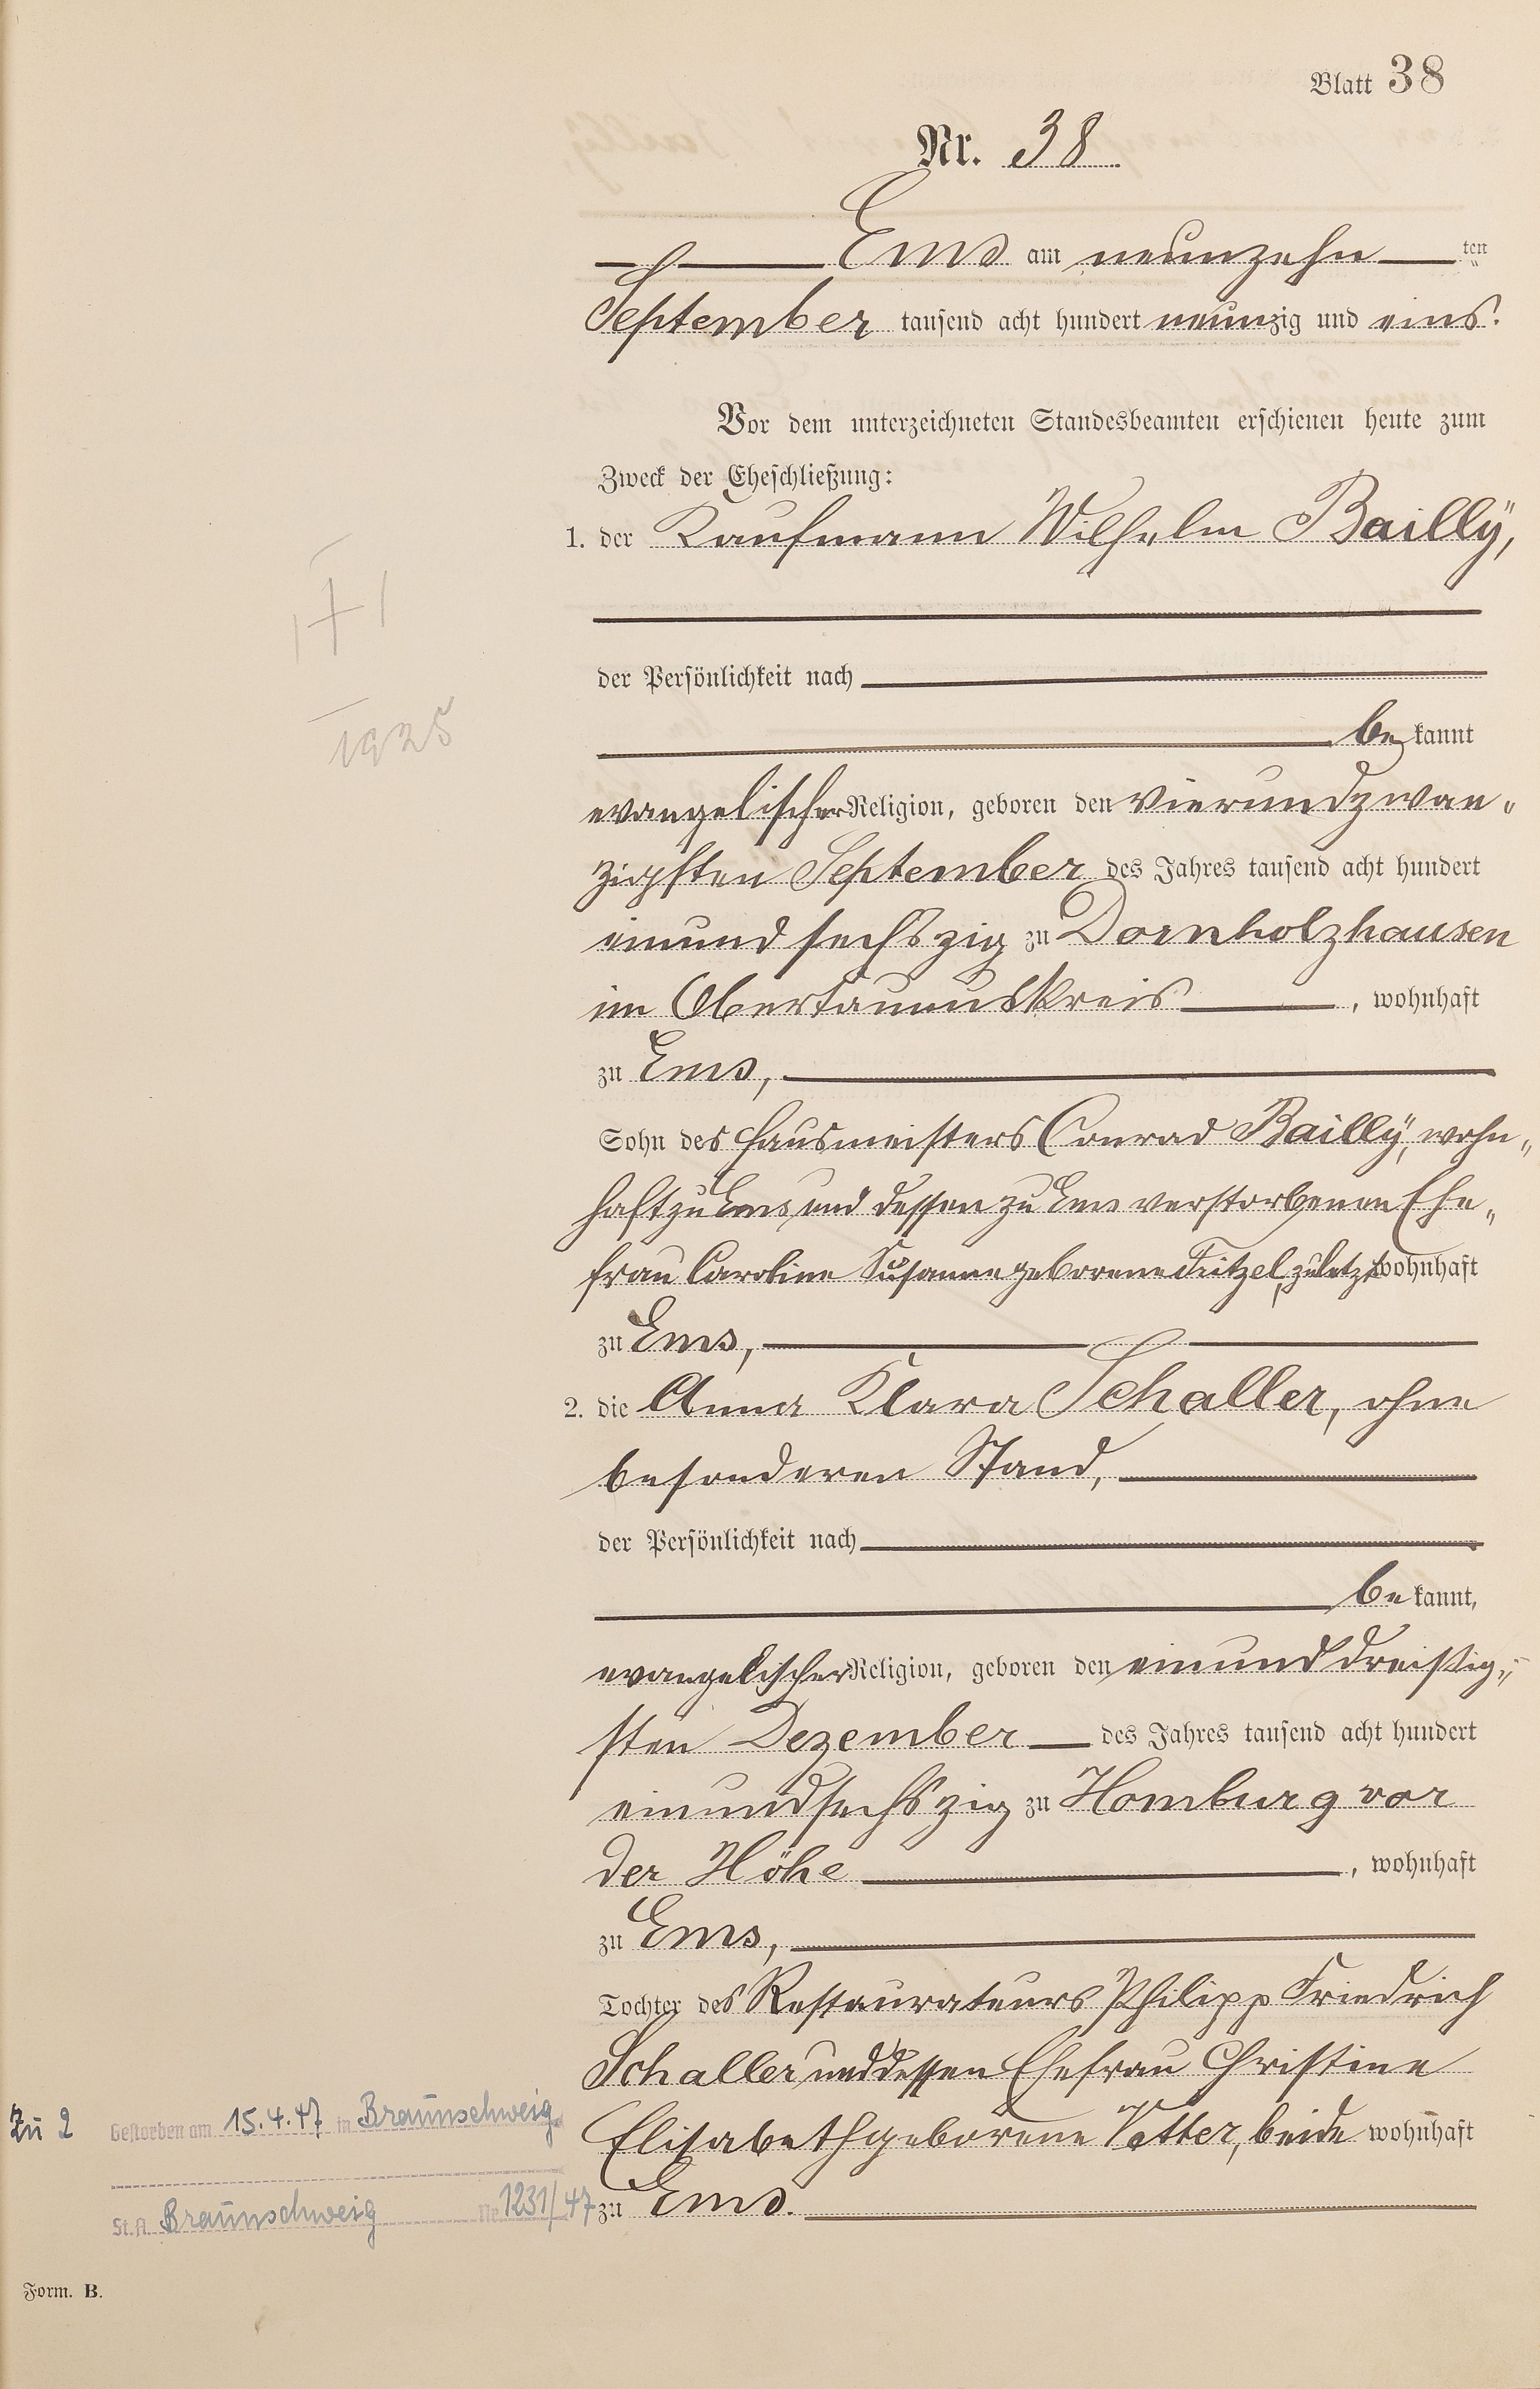 Blatt 38
Nr. 38
Ems am neunzehn ten
September tausend acht hundert neunzig und eins.
Vor dem unterzeichneten Standesbeamten erschienen heute zum
Zweck der Eheschließung:
1. der Kaufmann Wilhelm Baillÿ,
der Persönlichkeit nach
be kannt
evangelischer Religion, geboren den vierundzwan„
zigsten September des Jahres tausend acht hundert
einundsechszig zu Dornholzhausen
im Obertaunuskreis, wohnhaft
zu Ems,
Sohn des Hausmeisters Conrad Baillÿ, wohn„
haft zu Ems und dessen zu Ems verstorbenen Ehe„
frau Caroline Susanne geborene zuletzt wohnhaft
zu Ems,
2. die Anna Klara Schaller, ohne
besonderen Stand,
der Persönlichkeit nach
be kannt,
evangelischer Religion, geboren den einunddreißig„
sten Dezember des Jahres tausend acht hundert
einundsechszig zu Homburg vor
der Höhe, wohnhaft
zu Ems,
Tochter des Restaurateurs Philipp Friedrich
Schaller und dessen Ehefrau Christine
Elisabeth geborene Vetter, beide wohnhaft
zu Ems.
1925
Zu 2 Gestorben am 15.4.47 in Braunschweig
St.A. Braunschweig Nr. 1231/47
Form. B.